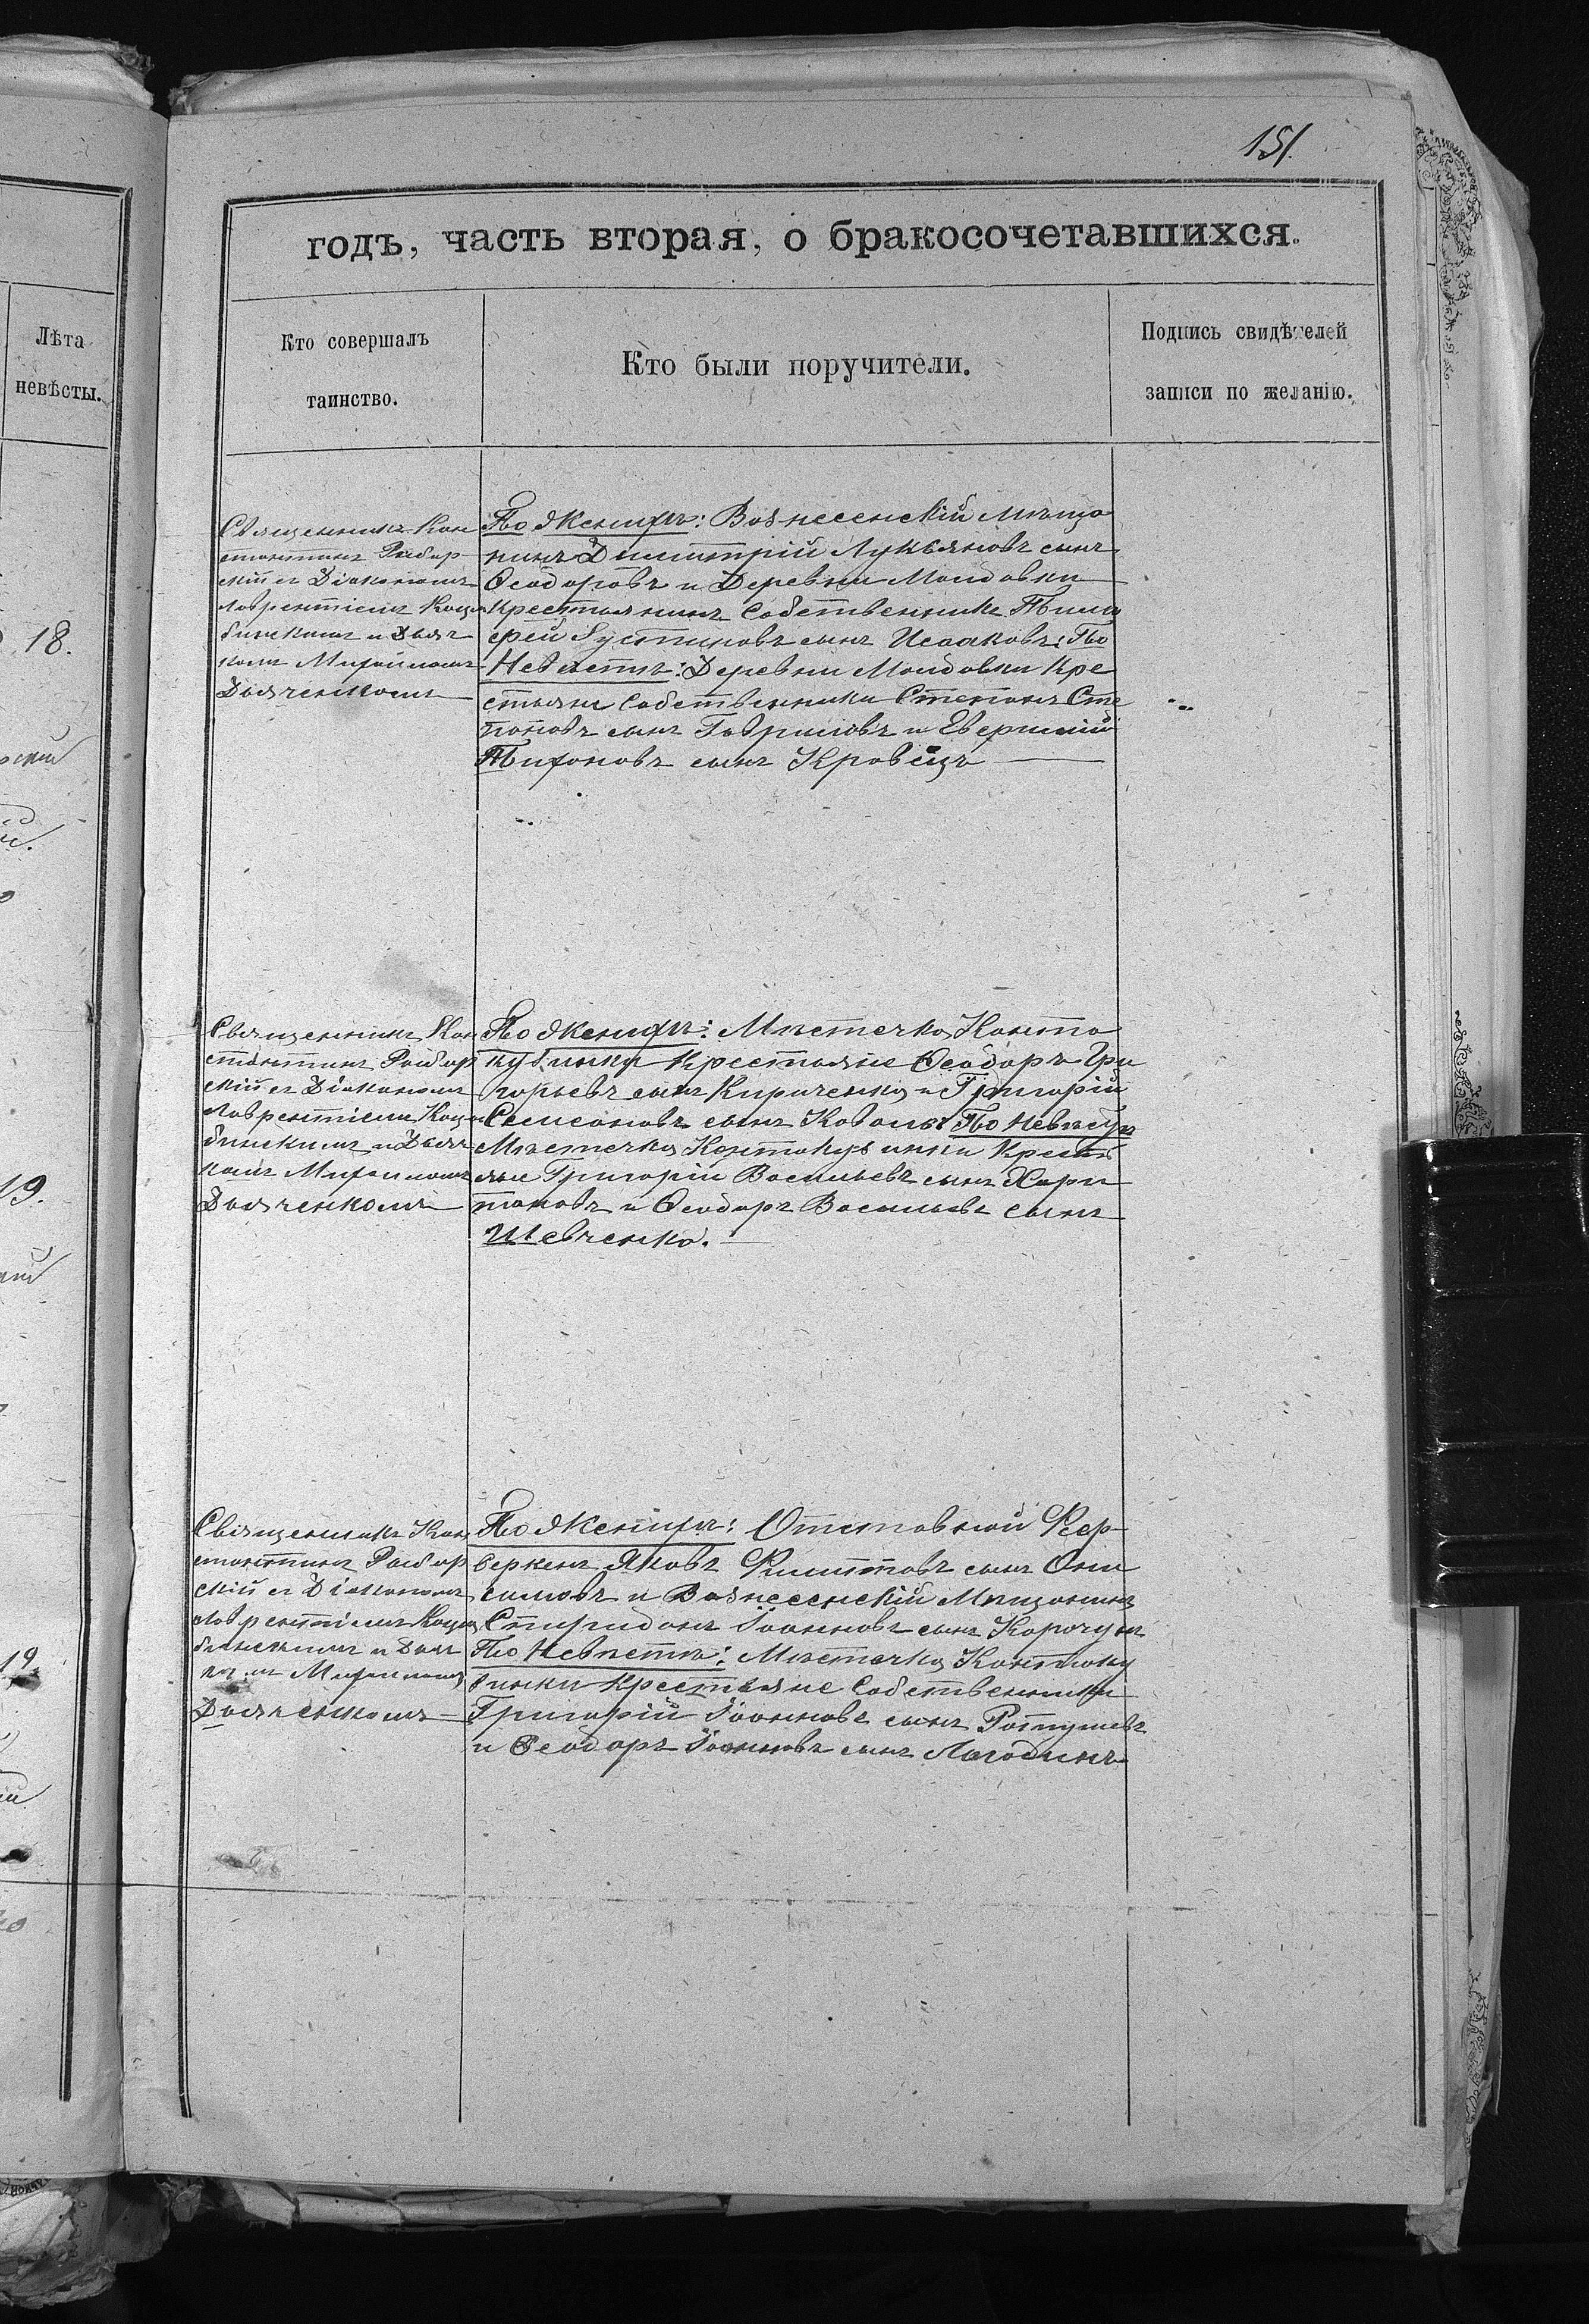 151.
годъ, часть вторая, о бракосочетавшихся.
Лѣта
невѣсты.
Кто совершалъ
таинство.
Кто были поручители.
Подпись свидѣтелей
записи по желанію.
18.
Священникъ Кон
стантинъ
скій съ Діакономъ
Лаврентіемъ Коцю
бинскимъ и Дьяч
комъ Михаиломъ
Дьяченкомъ
По Женихѣ: Вознесенскій мѣща
нинъ Димитрій Лукьяновъ сынъ
Ѳеодоровъ и Деревни Молдовки
крестьянинъ собственникъ Тимо
фей Іустиновъ сынъ Исааковъ; По
Невѣстѣ: Деревни Молдовки кре
стьяне собственники Степанъ Сте
пановъ сынъ Гавриловъ и
Тихоновъ сынъ Кравецъ
19.
Священникъ Кон
стантинъ
скій съ Діакономъ
Лаврентіемъ Коцю
бинскимъ и Дьяч
комъ Михаиломъ
Дьяченкомъ
По Женихѣ: Мѣстечка Канта
кузинки крестьяне Ѳеодоръ Гри
горьевъ сынъ Кириченко и Григорій
Семеоновъ сынъ Коваль; По Невѣстѣ
Мѣстечка Кантакузинки крестья
яне Григорій Васильевъ сынъ Хари
тоновъ и Ѳеодоръ Васильевъ сынъ
Шевченко.
19.
Священникъ Кон
стантинъ
скій съ Діакономъ
Лаврентіемъ Коцю
бинскимъ и Дьяч
комъ Михаиломъ
Дьяченкомъ
По Женихѣ: Отставной Феер-
веркеръ Яковъ Филиповъ сынъ Они
симовъ и Вознесенскій Мѣщанинъ
Спиридонъ Іоанновъ сынъ Корочунъ
По Невѣстѣ: Мѣстечка Кантаку
зинки крестьяне собственники
Григорій Іоанновъ сынъ
и Ѳеодоръ Іоанновъ сынъ Лагодинъ